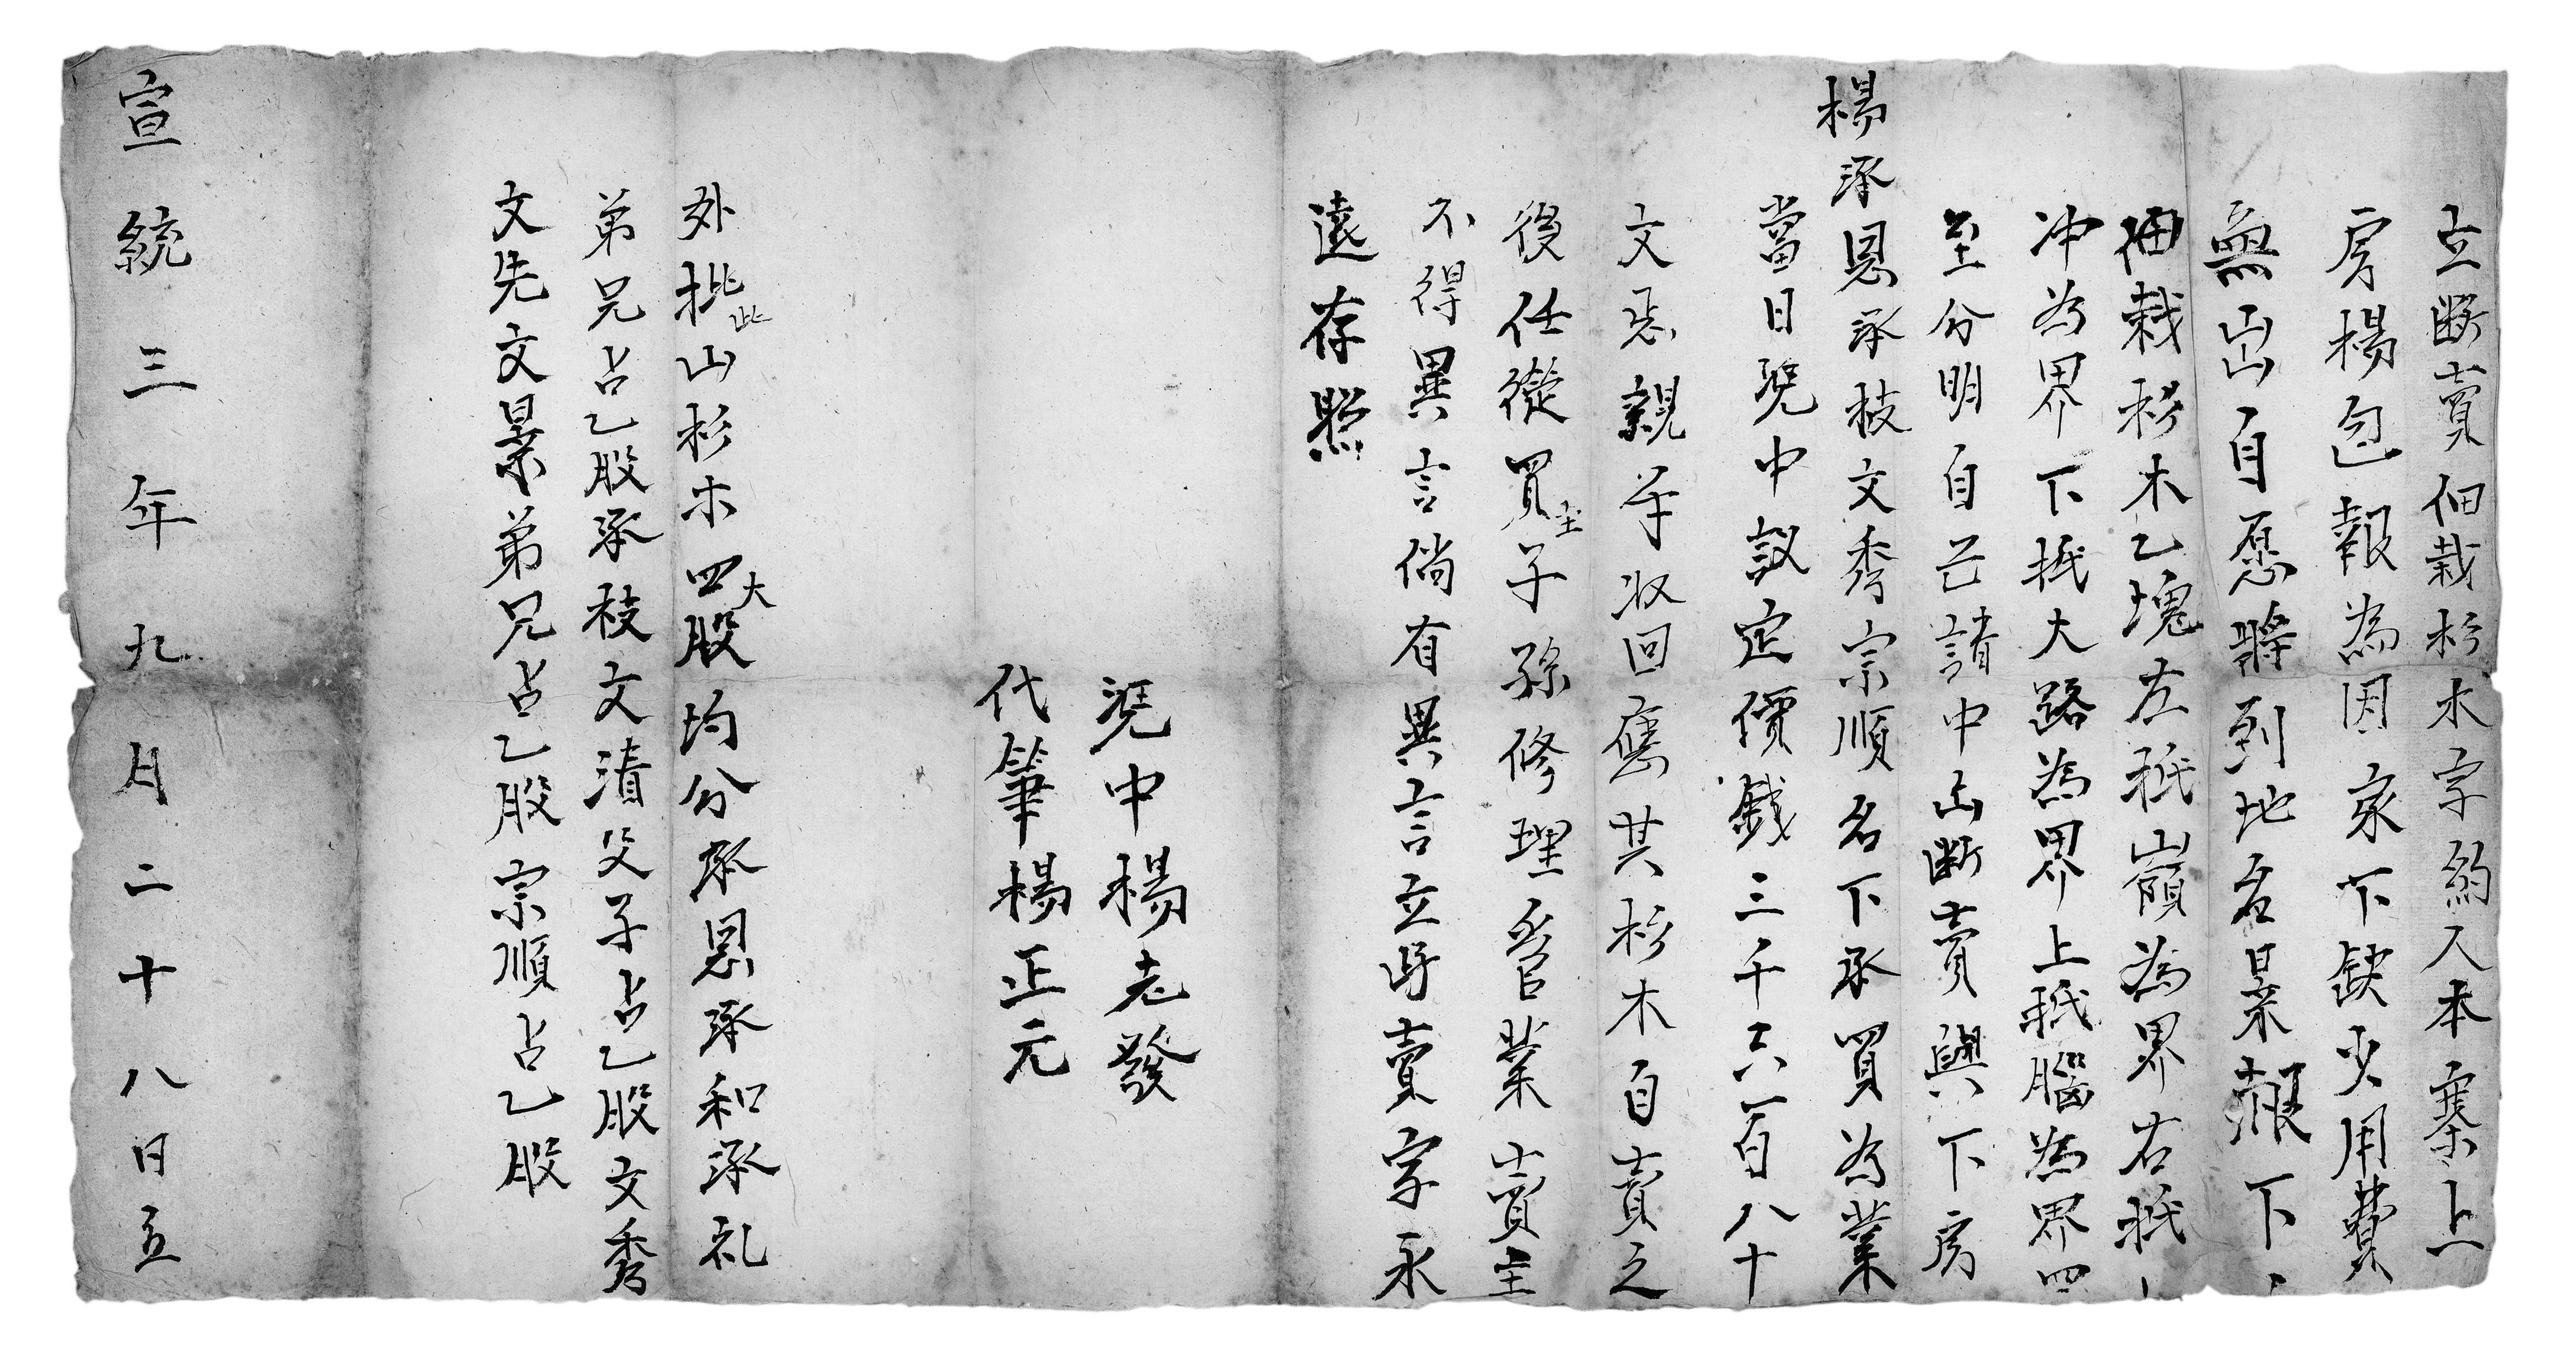 立断賣佃栽杉木字約人本寨上
房楊包報為因家下缺少用費
無出自愿將到地名景報下
佃栽杉木乙塊左抵嶺為界右抵
冲為界下抵大路為界上抵腦為界四
至分明自己請中出断賣與下房
楊承恩承枝文秀宗順名下承買為業
當日凴中議定價銭三千六百八十
文恁親手収回應其杉木自賣之
後任從買主子孫修理管業賣主
不得異言倘有異言立断賣字永
遠存照
凴中楊老發
代筆楊正元
外批此山杉木四大股均分承恩承和承礼
弟兄占乙股承枝文清父子占乙股文秀
文先文景弟兄占乙股宗順占乙股
宣統三年九月二十八日立